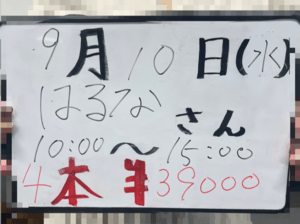 9月10日(水)
はるな さん
10:00〜15:00
4本半39000